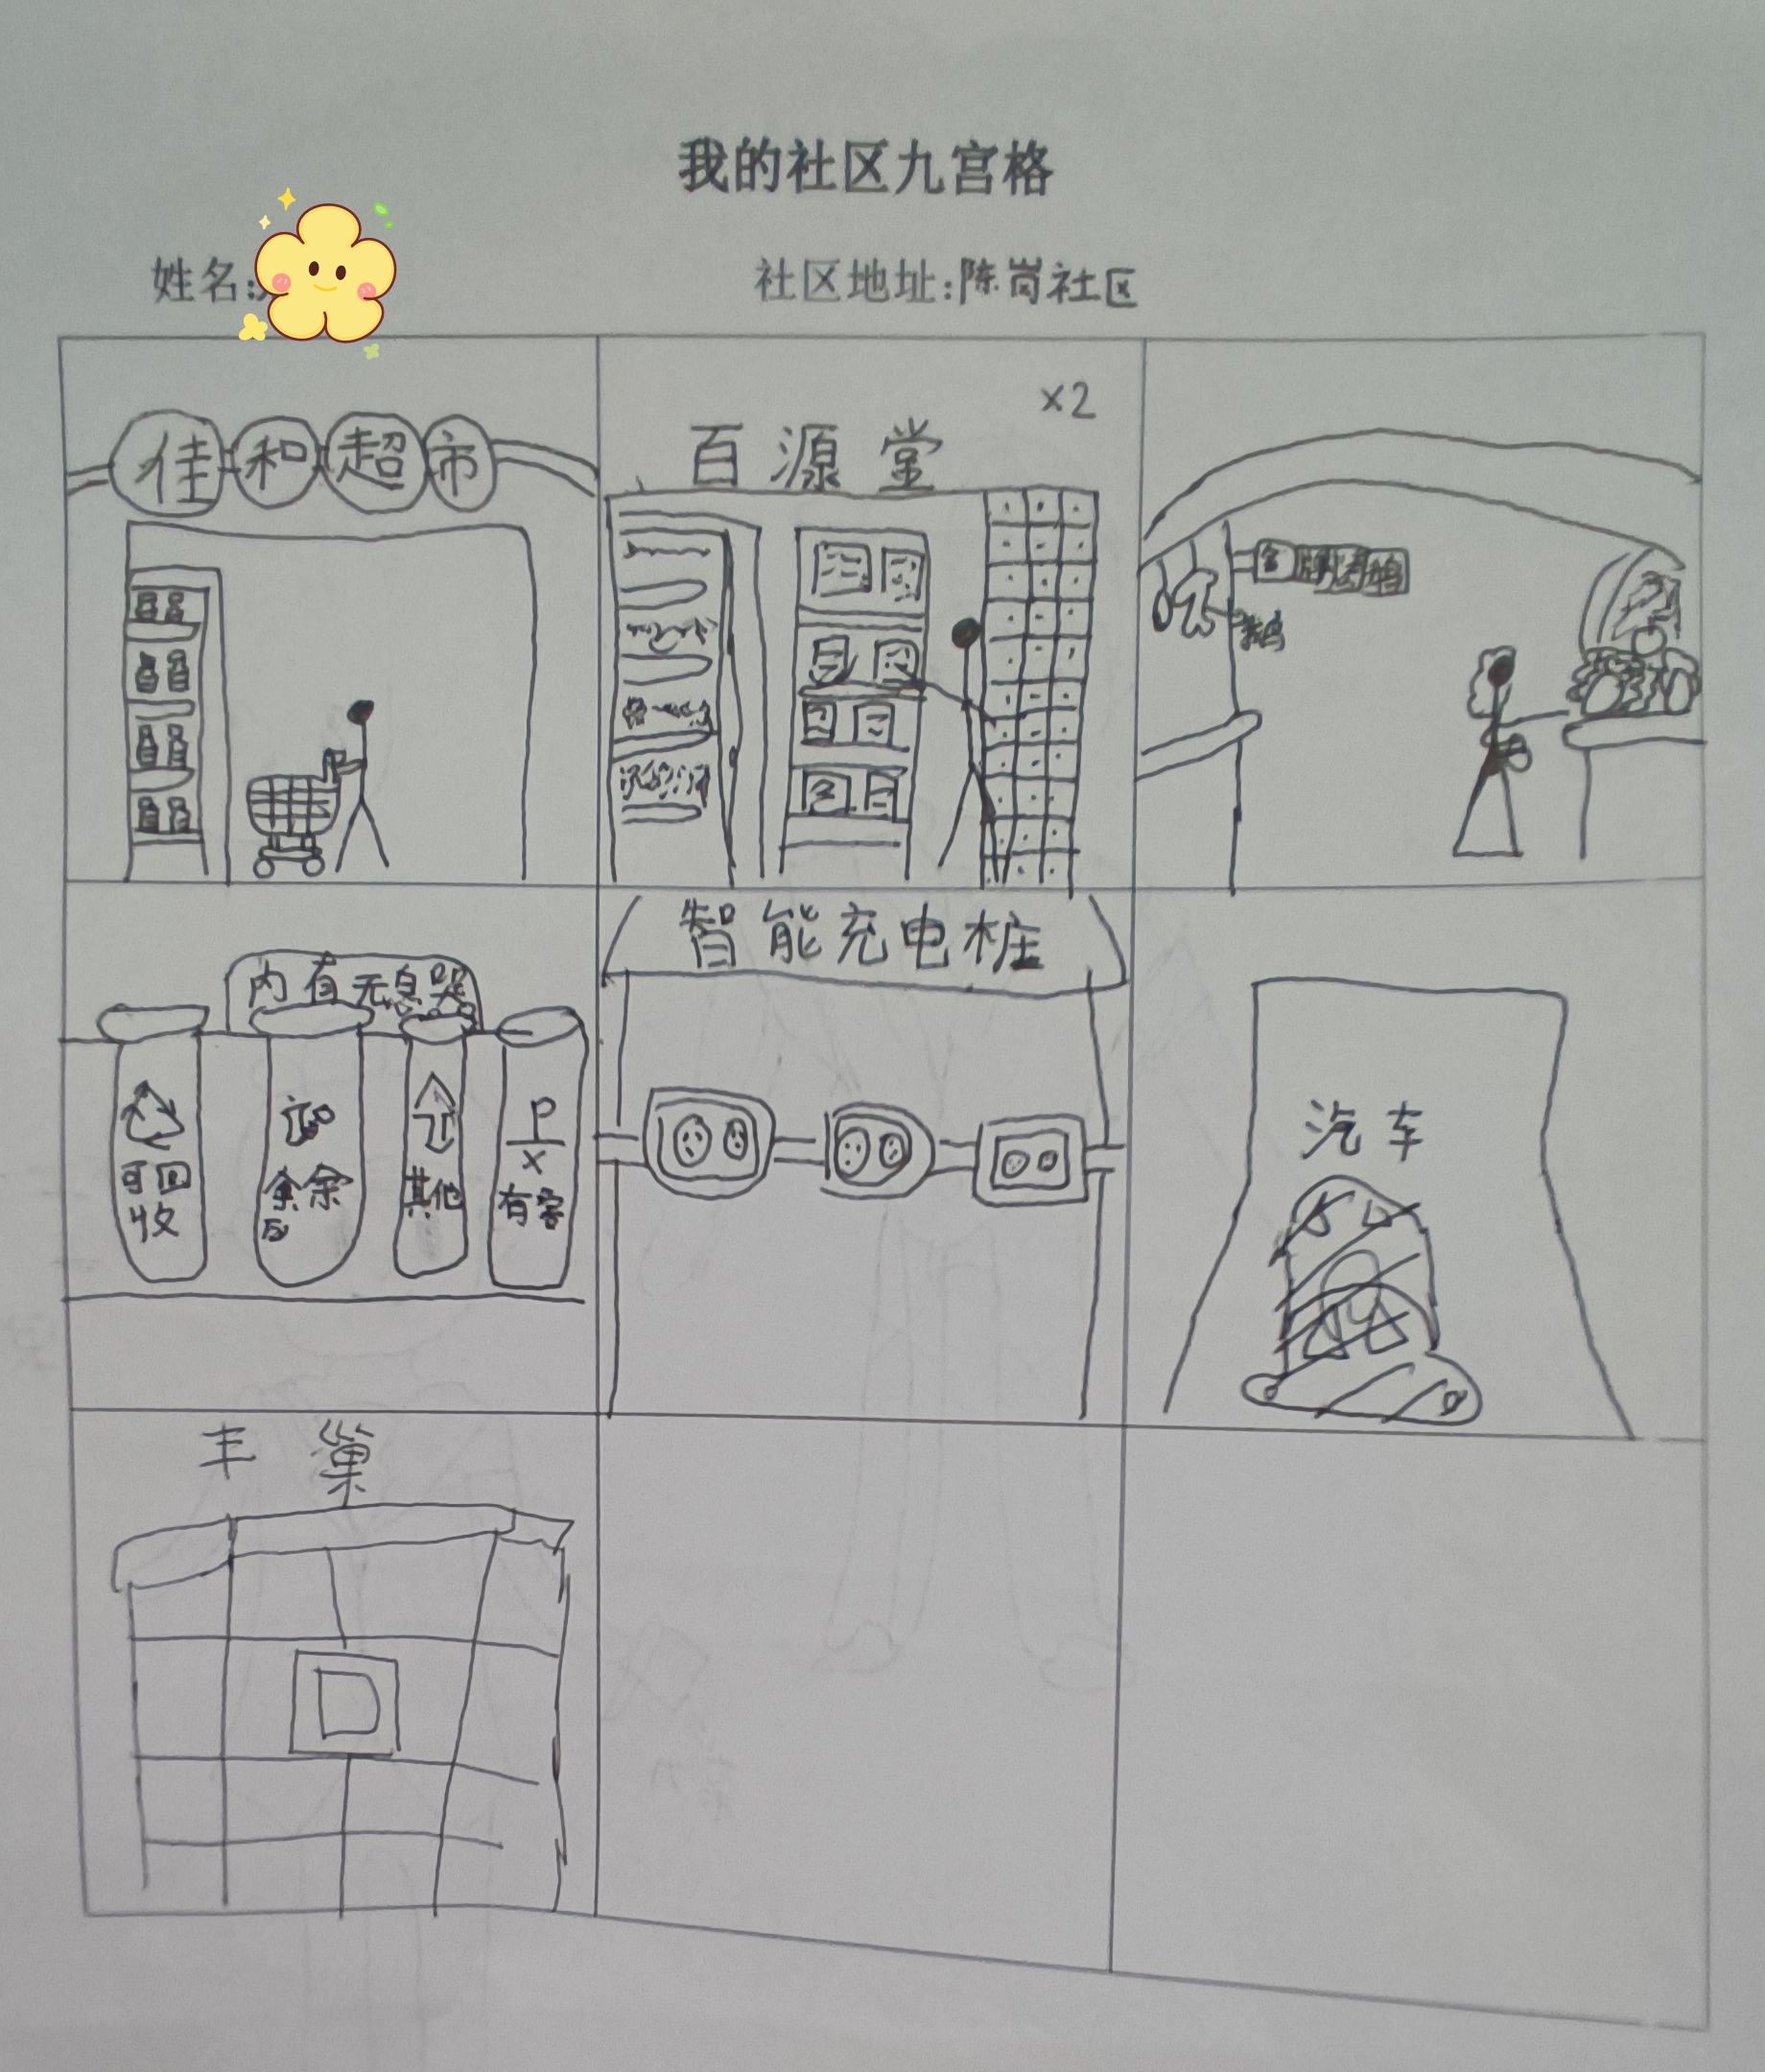 我的社区九宫格
姓名:
社区地址:陈岗社区
佳和超市
百源堂
×2
内有无臭器
可回
收
其他
有害
智能充电桩
汽车
丰巢